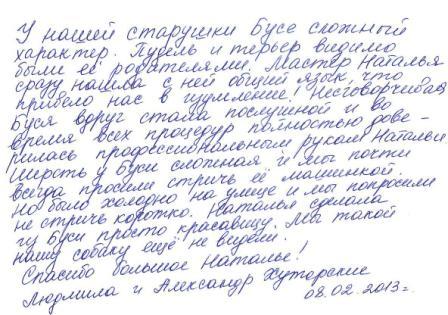 У нашей старушки Буси сложный
характер. Пудель и терьер видимо
были её родителями. Мастер Наталья
сразу нашла с ней общий язык, что
привело нас в изумление! Несговорчивая
Буся вдруг стала послушной и во
время всех процедур полностью дове-
рилась профессиональным рукам Натальи.
Шерсть у Буси сложная и мы почти
всегда просили стричь её машинкой.
Но было холодно на улице и мы попросили
не стричь коротко. Наталья сделала
Буси просто красавицу. Мы такой
нашу собаку ещё не видели.
Спасибо большое Наталье!
Людмила и Александр Хуторские
08.02.2013г.